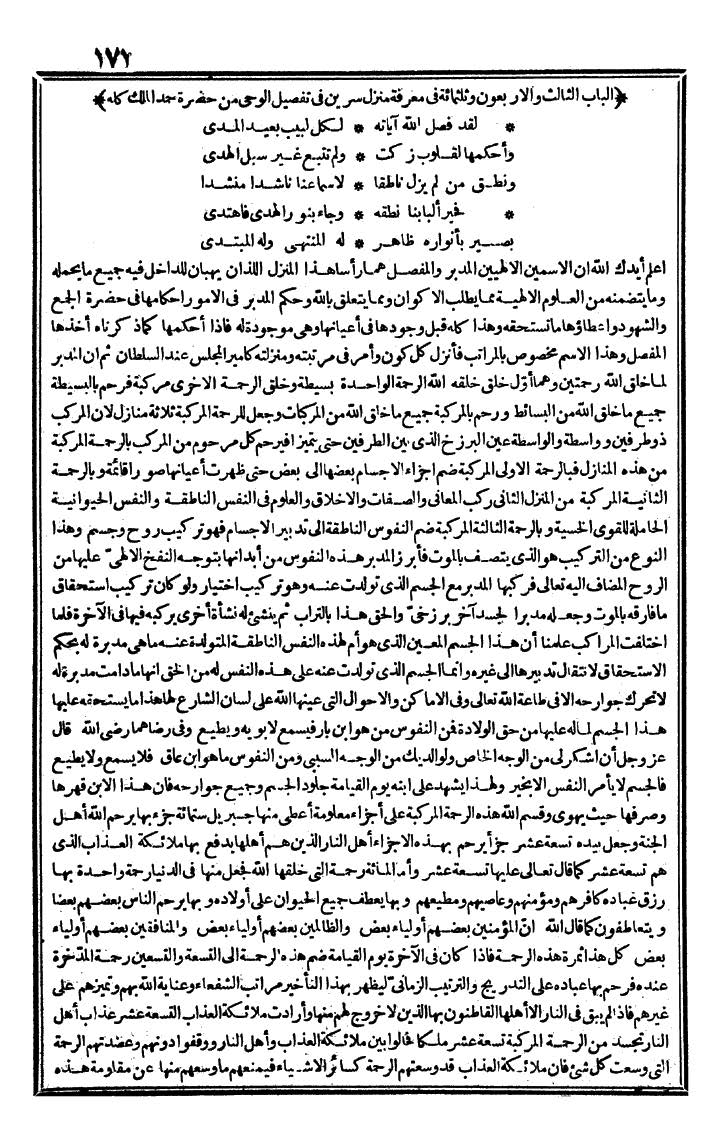 ١٧١
﴿الباب الثالث والاربعون وثلثمائة فى معرفة منزل سرين فى تفصيل الوحى من حضرة حمد الملك كله﴾
* لقد فصل الله آياته * لكل لبيب بعيد المدى
وأحكمها لقلوب زكت * ولم تتبع غير سبل الهدى
ونطق من لم يزل ناطقا * لاسماعنا ناشدا منشدا
* فخير ألبابنا نطقه * وجاء بنور الهدى فاهتدى
بصير بأنواره ظاهر * له المنتهى وله المبتدى
اعلم أيدك الله ان الاسمين الالهيين المدبر والمفصل هما رأسا هذا المنزل اللذان يهبان للداخل فيه جميع ما يحمله
وما يتضمنه من العلوم الالهية مما يطلب الاكوان ومما يتعلق بالله وحكم المدبر فى الامور احكامها فى حضرة الجمع
والشهود واعطاؤها ما تستحقه وهذا كله قبل وجودها فى أعيانها وهى موجودة له فاذا أحكمها كما ذكرناه أخذها
المفصل وهذا الاسم مخصوص بالمراتب فأنزل كل كون وأمر فى مرتبته ومنزلته كامير المجلس عند السلطان ثم ان المدبر
لما خلق الله رحمتين وهما أول خلق خلقه الله الرحمة الواحدة بسيطة وخلق الرحمة الاخرى مركبة فرحم بالبسيطة
جميع ما خلق الله من البسائط ورحم بالمركبة جميع ما خلق الله من المركبات وجعل للرحمة المركبة ثلاثة منازل لان المركب
ذو طرفين وواسطة والواسطة عين البرزخ الذى بين الطرفين حتى يتميزا فيرحم كل مرحوم من المركب بالرحمة المركبة
من هذه المنازل فبالرحمة الاولى المركبة ضم اجزاء الاجسام بعضها الى بعض حتى ظهرت أعيانها صورا قائمة وبالرحمة
الثانية المركبة من المنزل الثانى ركب المعانى والصفات والاخلاق والعلوم فى النفس الناطقة والنفس الحيوانية
الحاملة للقوى الحسية وبالرحمة الثالثة المركبة ضم النفوس الناطقة الى تدبير الاجسام فهو تركيب روح وجسم وهذا
النوع من التركيب هو الذى يتصف بالموت فأبرز المدبر هذه النفوس من أبدانها بتوجه النفخ الالهىّ عليها من
الروح المضاف اليه تعالى فركبها المدبر مع الجسم الذى تولدت عنه وهو تركيب اختيار ولو كان تركيب استحقاق
ما فارقه بالموت وجعله مدبرا لجسد آخر برزخىّ وألحق هذا بالتراب ثم ينشئ له نشأة أخرى يركبه فيها فى الآخرة فلما
اختلفت المراكب علمنا أن هذا الجسم المعين الذى هو أم لهذه النفس الناطقة المتولدة عنه ما هى مدبرة له بحكم
الاستحقاق لانتقال تدبيرها الى غيره وانما الجسم الذى تولدت عنه على هذه النفس له من الحق انها ما دامت مدبرة له
لا تحرك جوارحه الا فى طاعة الله تعالى وفى الاماكن والاحوال التى عينها الله على لسان الشارع لها هذا ما يستحقه عليها
هذا الجسم لما له عليها من حق الولادة فمن النفوس من هو ابن بار فيسمع لابويه ويطيع وفى رضاهما رضى الله قال
عز وجل أن اشكر لى من الوجه الخاص ولوالديك من الوجه السببى ومن النفوس ما هو ابن عاق فلا يسمع ولا يطيع
فالجسم لا يأمر النفس الا بخير ولهذا يشهد على ابنه يوم القيامة جلود الجسم وجميع جوارحه فان هذا الابن قهرها
وصرفها حيث يهوى وقسم الله هذه الرحمة المركبة على أجزاء معلومة أعطى منها جبريل ستمائة جزء بها يرحم الله أهل
الجنة وجعل بيده تسعة عشر جزأ يرحم بهذه الاجزاء أهل النار الذين هم أهلها يدفع بها ملائكة العذاب الذى
هم تسعة عشر كما قال تعالى عليها تسعة عشر وأما المائة رحمة التى خلقها الله فجعل منها فى الدنيا رحمة واحدة بها
رزق عباده كافرهم ومؤمنهم وعاصيهم ومطيعهم وبها يعطف جميع الحيوان على أولاده وبها يرحم الناس بعضهم بعضا
ويتعاطفون كما قال الله انّ المؤمنين بعضهم أولياء بعض والظالمين بعضهم أولياء بعض والمنافقين بعضهم أولياء
بعض كل هذا ثمرة هذه الرحمة فاذا كان فى الآخرة يوم القيامة ضم هذه الرحمة الى التسعة والتسعين رحمة المدّخرة
عنده فرحم بها عباده على التدريج والترتيب الزمانىّ ليظهر بهذا التأخير مراتب الشفعاء وعناية الله بهم وتميزهم على
غيرهم فاذا لم يبق فى النار الا أهلها القاطنون بها الذين لا خروج لهم منها وأرادت ملائكة العذاب التسعة عشر عذاب أهل
النار تجسد من الرحمة المركبة تسعة عشر ملكا فحالوا بين ملائكة العذاب وأهل النار ووقفوا دونهم وعضدتهم الرحمة
التى وسعت كل شئ فان ملائكة العذاب قد وسعتهم الرحمة كسائر الاشياء فيمنعهم ما وسعهم منها عن مقاومة هذه